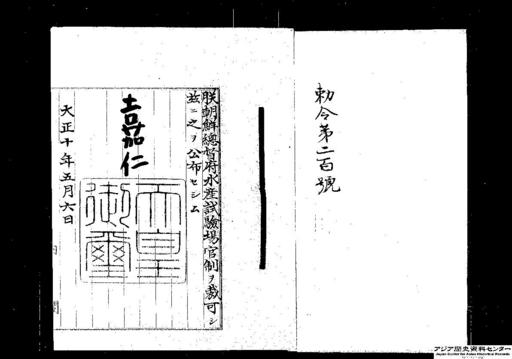 勅令第二百號
朕朝鮮總督府水產試驗場官制ヲ裁可シ
茲ニ之ヲ公布セシム
嘉仁
天皇
御璽
大正十年五月六日
アジア歴史資料センター
Japan Center for Asian Historical Records